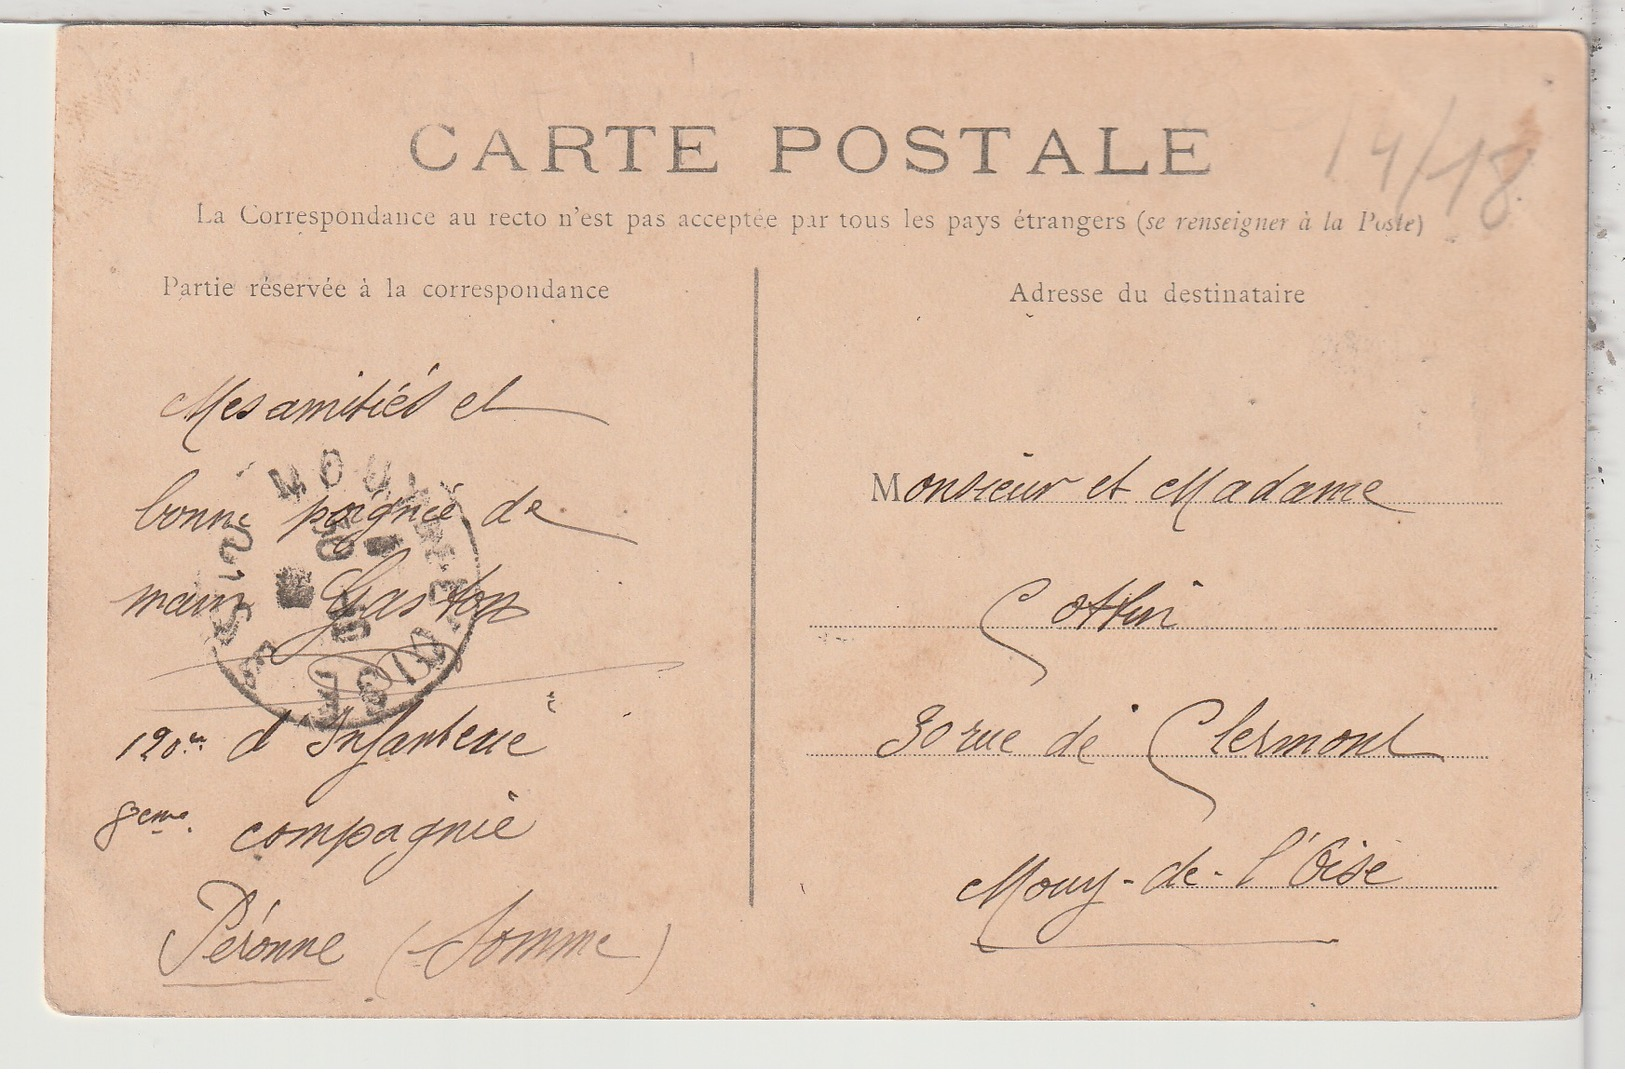 CARTE POSTALE
14/18
La Correspondance au recto n'est pas acceptée par tous les pays étrangers (se renseigner à la Poste)
Partie réservée à la correspondance
Mes amitiés et
bonne poignée de
main Gaston
120e d'Infanterie
8eme compagnie
Péronne (Somme)
Adresse du destinataire
Monsieur et Madame
Cottin
30 rue de Clermont
Mouy-de-l'Oise